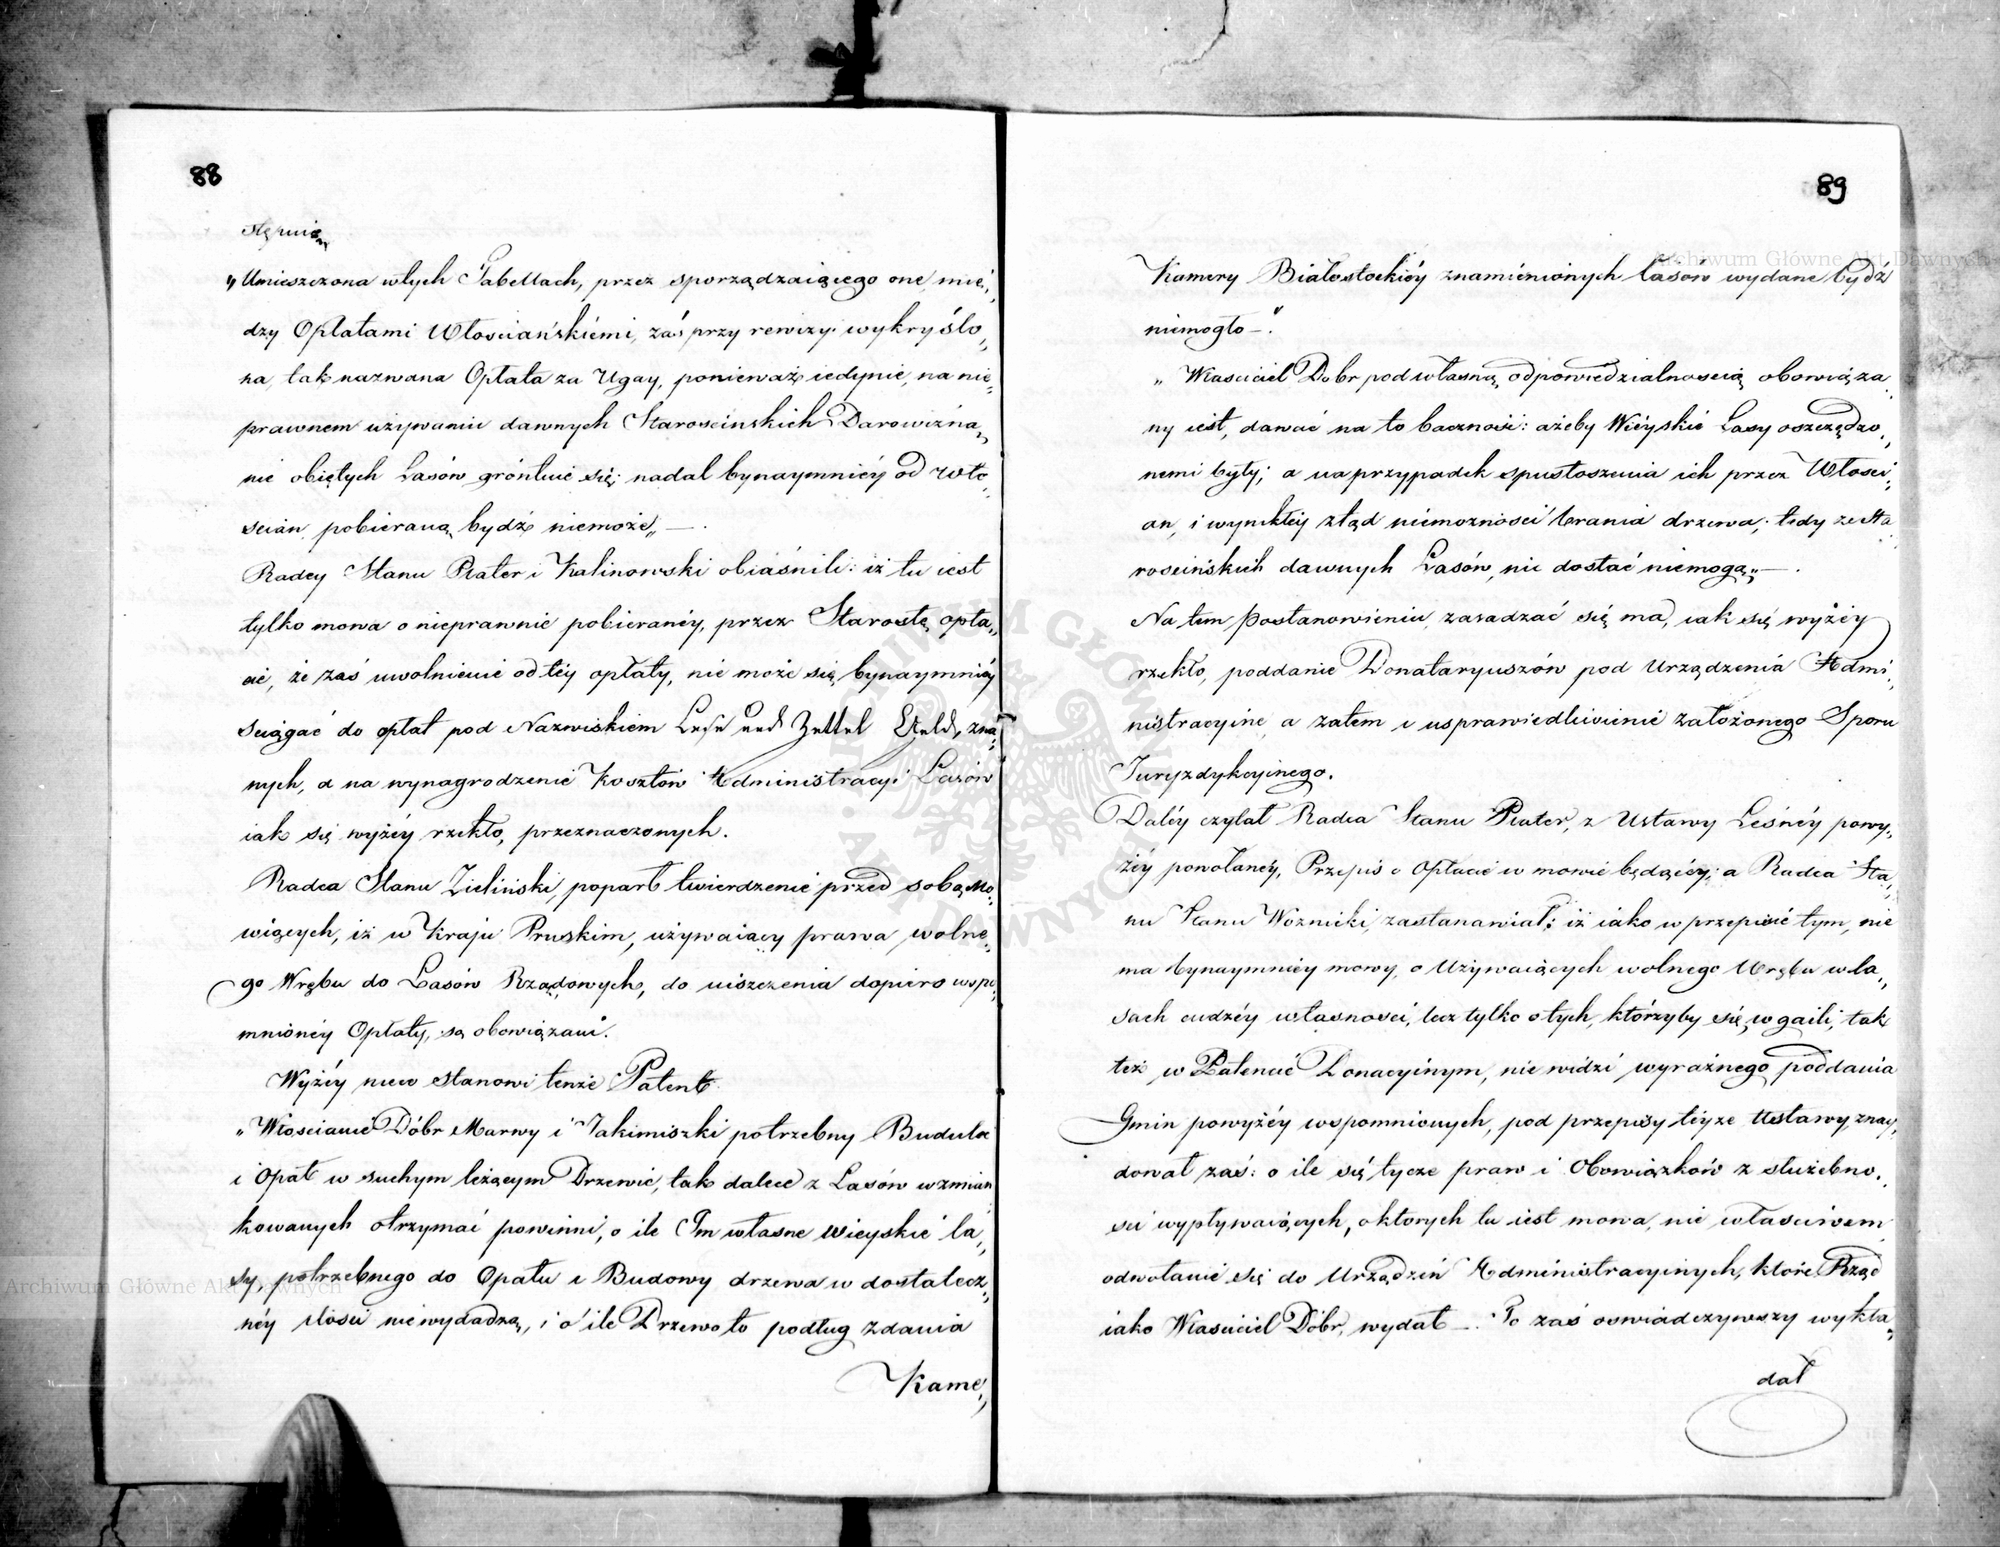 88
stępnie
„Umieszczona wtych Tabellach, przez sporządzaiącego one, mię„
dzy Opłatami Włościańskiémi, zaś przy rewizyi wykryślo„
na, tak nazwana Opłata za Ugay, ponieważ iedynie, na nie„
prawnem używaniu dawnych Starościnskich Darowizną„
nie obiętych Lasów gróntuie się; nadal bynaymniéy od Wło„
ścian, pobieraną bydź niemoże„ — .
Radcy Stanu Plater i Kalinowski obiaśnili: iż tu iest
tylko mowa o nieprawnie pobieranéy, przez Starostę, opła„
cie, że zaś uwolnienie od téy opłaty, nie może się bynaymniéy
ściągać do opłat pod Nazwiskiem Lese und Zettel Geld, zna„
nych, a na wynagrodzenie Kosztów Administracyi Lasów
iak się wyżéy rzekło, przeznaczonych.
Radca Stanu Zieliński, poparł twierdzenie przed sobą Mo„
wiących, iż w Kraju Pruskim, używaiący prawa wolne„
go Wrębu do Lasów Rządowych, do uiszczenia dopiero wspo„
mnionéy Opłaty, są obowiązani.
Wyżéy nieco stanowi tenże Patent.
„Włościanie Dóbr Marwy i Jakimiszki potrzebny Budulec
i Opał w suchym leżącym Drzewie, tak dalece z Lasów wzmian
kowanych otrzymać powinni, o ile Im własne wieyskie la„
sy, potrzebnego do Opału i Budowy drzewa w dostatecz„
néy ilości nie wydadzą, i o ile Drzewo to podług zdania
Kame„
89
Kamery Białostockiéy znamiénionych Lasow wydane bydź
niemogło —."
„Właściciel Dobr pod własną odpowiedzialnością obowiąza„
ny iest, dawać na to baczność: ażeby Wieyskie Lasy oszczędzo„
nemi były; a na przypadek spustoszenia ich przez Włości„
an, i wynikłéy ztąd niemozności brania drzewa; tedy ze Sta„
rościńskich dawnych Lasów, nic dostać niemogą„ — .
Na tem postanowieniu, zasadzać się ma, iak się wyżéy
rzekło, poddanie Donataryuszów pod Urządzenia Admi„
nistracyine, a zatem i usprawiedliwienie założonego Sporu
Juryzdykcyinego.
Daléy czytał Radca Stanu Plater, z Ustawy Leśnéy powy„
żéy powołanéy, Przepis o Opłacie w mowie będącéy; a Radca Sta„
nu Stanu Woznicki, zastanawiał: iż iako w przepisie tym, nie
ma bynaymniéy mowy, o Używaiących wolnego Wrębu w la„
sach cudzéy własności, lecz tylko o tych, którzyby się wgaili, tak
też w Patencie Donacyinym, nie widzi wyraźnego poddania
Gmin powyżéy wspomnionych, pod przepisy téyze Ustawy, znay„
dował zaś: o ile się tycze praw i Obowiązków z służebno„
ści wypływaiących, o ktorych tu iest mowa, nie właściwem
odwołanie się do Urządzeń Administracyinych, które Rząd
iako Właściciel Dóbr, wydał —. To zaś oswiadczywszy wykła„
dał
Archiwum Główne Akt Dawnych
Archiwum Główne Akt Dawnych
ARCHIWUM GŁÓWNE AKT DAWNYCH